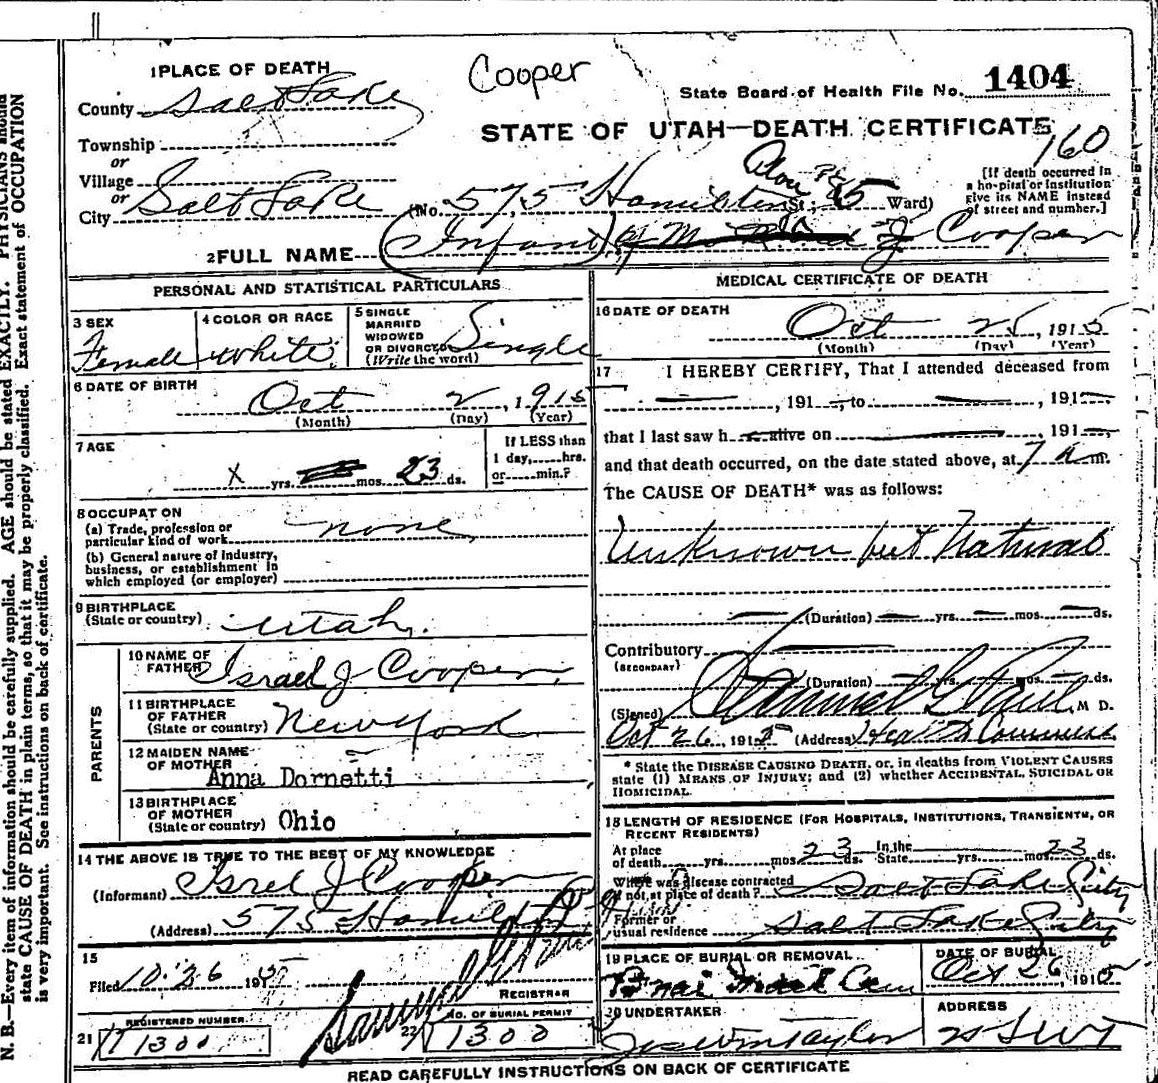 Cooper
1 PLACE OF DEATH
County Salt Lake
State Board of Health File No. 1404
STATE OF UTAH—DEATH CERTIFICATE
160
Township
or
Village
or
City Salt Lake (No. 575 Hamilton St.; 5 Ward)
[If death occurred in
a hospital or institution
give its NAME instead
of street and number.]
2 FULL NAME (Infant) of J Cooper
PERSONAL AND STATISTICAL PARTICULARS
3 SEX
Female
4 COLOR OR RACE
White
5 SINGLE
MARRIED
WIDOWED
OR DIVORCED
(Write the word)
Single
6 DATE OF BIRTH
Oct 2, 1915
(Month) (Day) (Year)
7 AGE
If LESS than
1 day,......hrs.
or......min.?
x yrs. mos. 23 ds.
8 OCCUPATION
(a) Trade, profession or
particular kind of work none
(b) General nature of industry,
business, or establishment in
which employed (or employer)
9 BIRTHPLACE
(State or country) Utah.
PARENTS
10 NAME OF
FATHER Israel J Cooper
11 BIRTHPLACE
OF FATHER
(State or country) New York
12 MAIDEN NAME
OF MOTHER
Anna Dornetti
13 BIRTHPLACE
OF MOTHER
(State or country) Ohio
14 THE ABOVE IS TRUE TO THE BEST OF MY KNOWLEDGE
(Informant) Isrel J Cooper
(Address) 575 Hamilton
15
Filed 10-26 1915
REGISTRAR
REGISTERED NUMBER
21 1300
NO. OF BURIAL PERMIT
22 1300
MEDICAL CERTIFICATE OF DEATH
16 DATE OF DEATH
Oct 25, 1915
(Month) (Day) (Year)
17 I HEREBY CERTIFY, That I attended deceased from
, 191 , to , 191
that I last saw h alive on 191
and that death occurred, on the date stated above, at 7 a m.
The CAUSE OF DEATH* was as follows:
Unknown but Natural
(Duration) yrs. mos. ds.
Contributory
(SECONDARY)
(Duration) yrs. mos. ds.
(Signed) Samuel G Paul M D.
Oct 26, 1915 (Address) Health
* State the DISEASE CAUSING DEATH, or, in deaths from VIOLENT CAUSES
state (1) MEANS OF INJURY; and (2) whether ACCIDENTAL, SUICIDAL OR
HOMICIDAL.
18 LENGTH OF RESIDENCE (FOR HOSPITALS, INSTITUTIONS, TRANSIENTS, OR
RECENT RESIDENTS)
At place
of death yrs. mos. 23 ds.
In the
State yrs. mos. 23 ds.
Where was disease contracted
if not, at place of death? Salt Lake City
Former or
usual residence Salt Lake City
19 PLACE OF BURIAL OR REMOVAL
DATE OF BURIAL
Oct 26 1915
20 UNDERTAKER
Jos Wm Taylor
ADDRESS
READ CAREFULLY INSTRUCTIONS ON BACK OF CERTIFICATE
N. B.—Every item of information should be carefully supplied. AGE should be stated EXACTLY. PHYSICIANS should
state CAUSE OF DEATH in plain terms, so that it may be properly classified. Exact statement of OCCUPATION
is very important. See instructions on back of certificate.